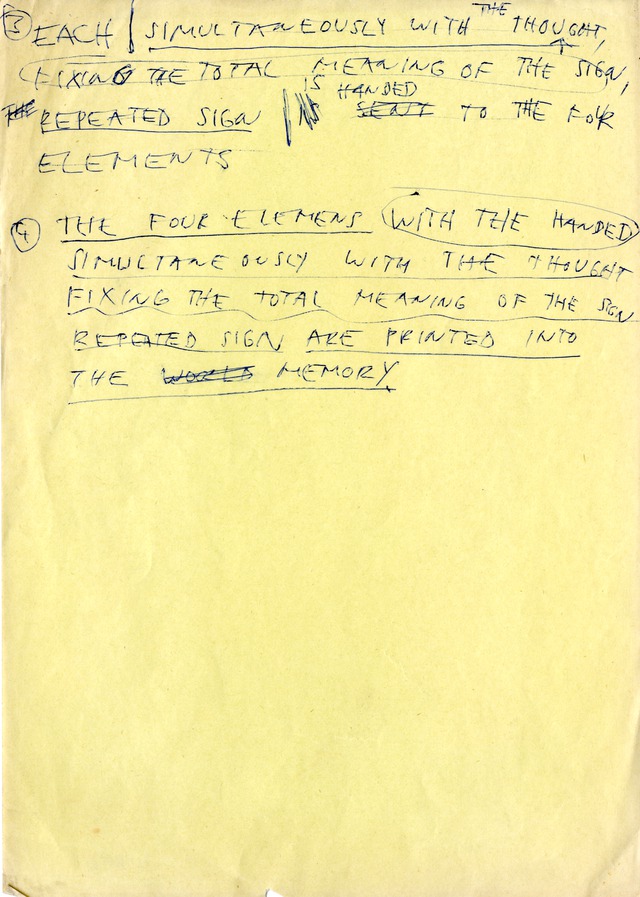 3 EACH | SIMULTANEOUSLY WITH THE THOUGHT,
FIXING THE TOTAL MEANING OF THE SIGN,
THE REPEATED SIGN IS HANDED SENT TO THE FOUR
ELEMENTS
4 THE FOUR ELEMENS (WITH THE HANDED)
SIMULTANEOUSLY WITH THE THOUGHT
FIXING THE TOTAL MEANING OF THE SIGN
REPEATED SIGN ARE PRINTED INTO
THE WORLD MEMORY